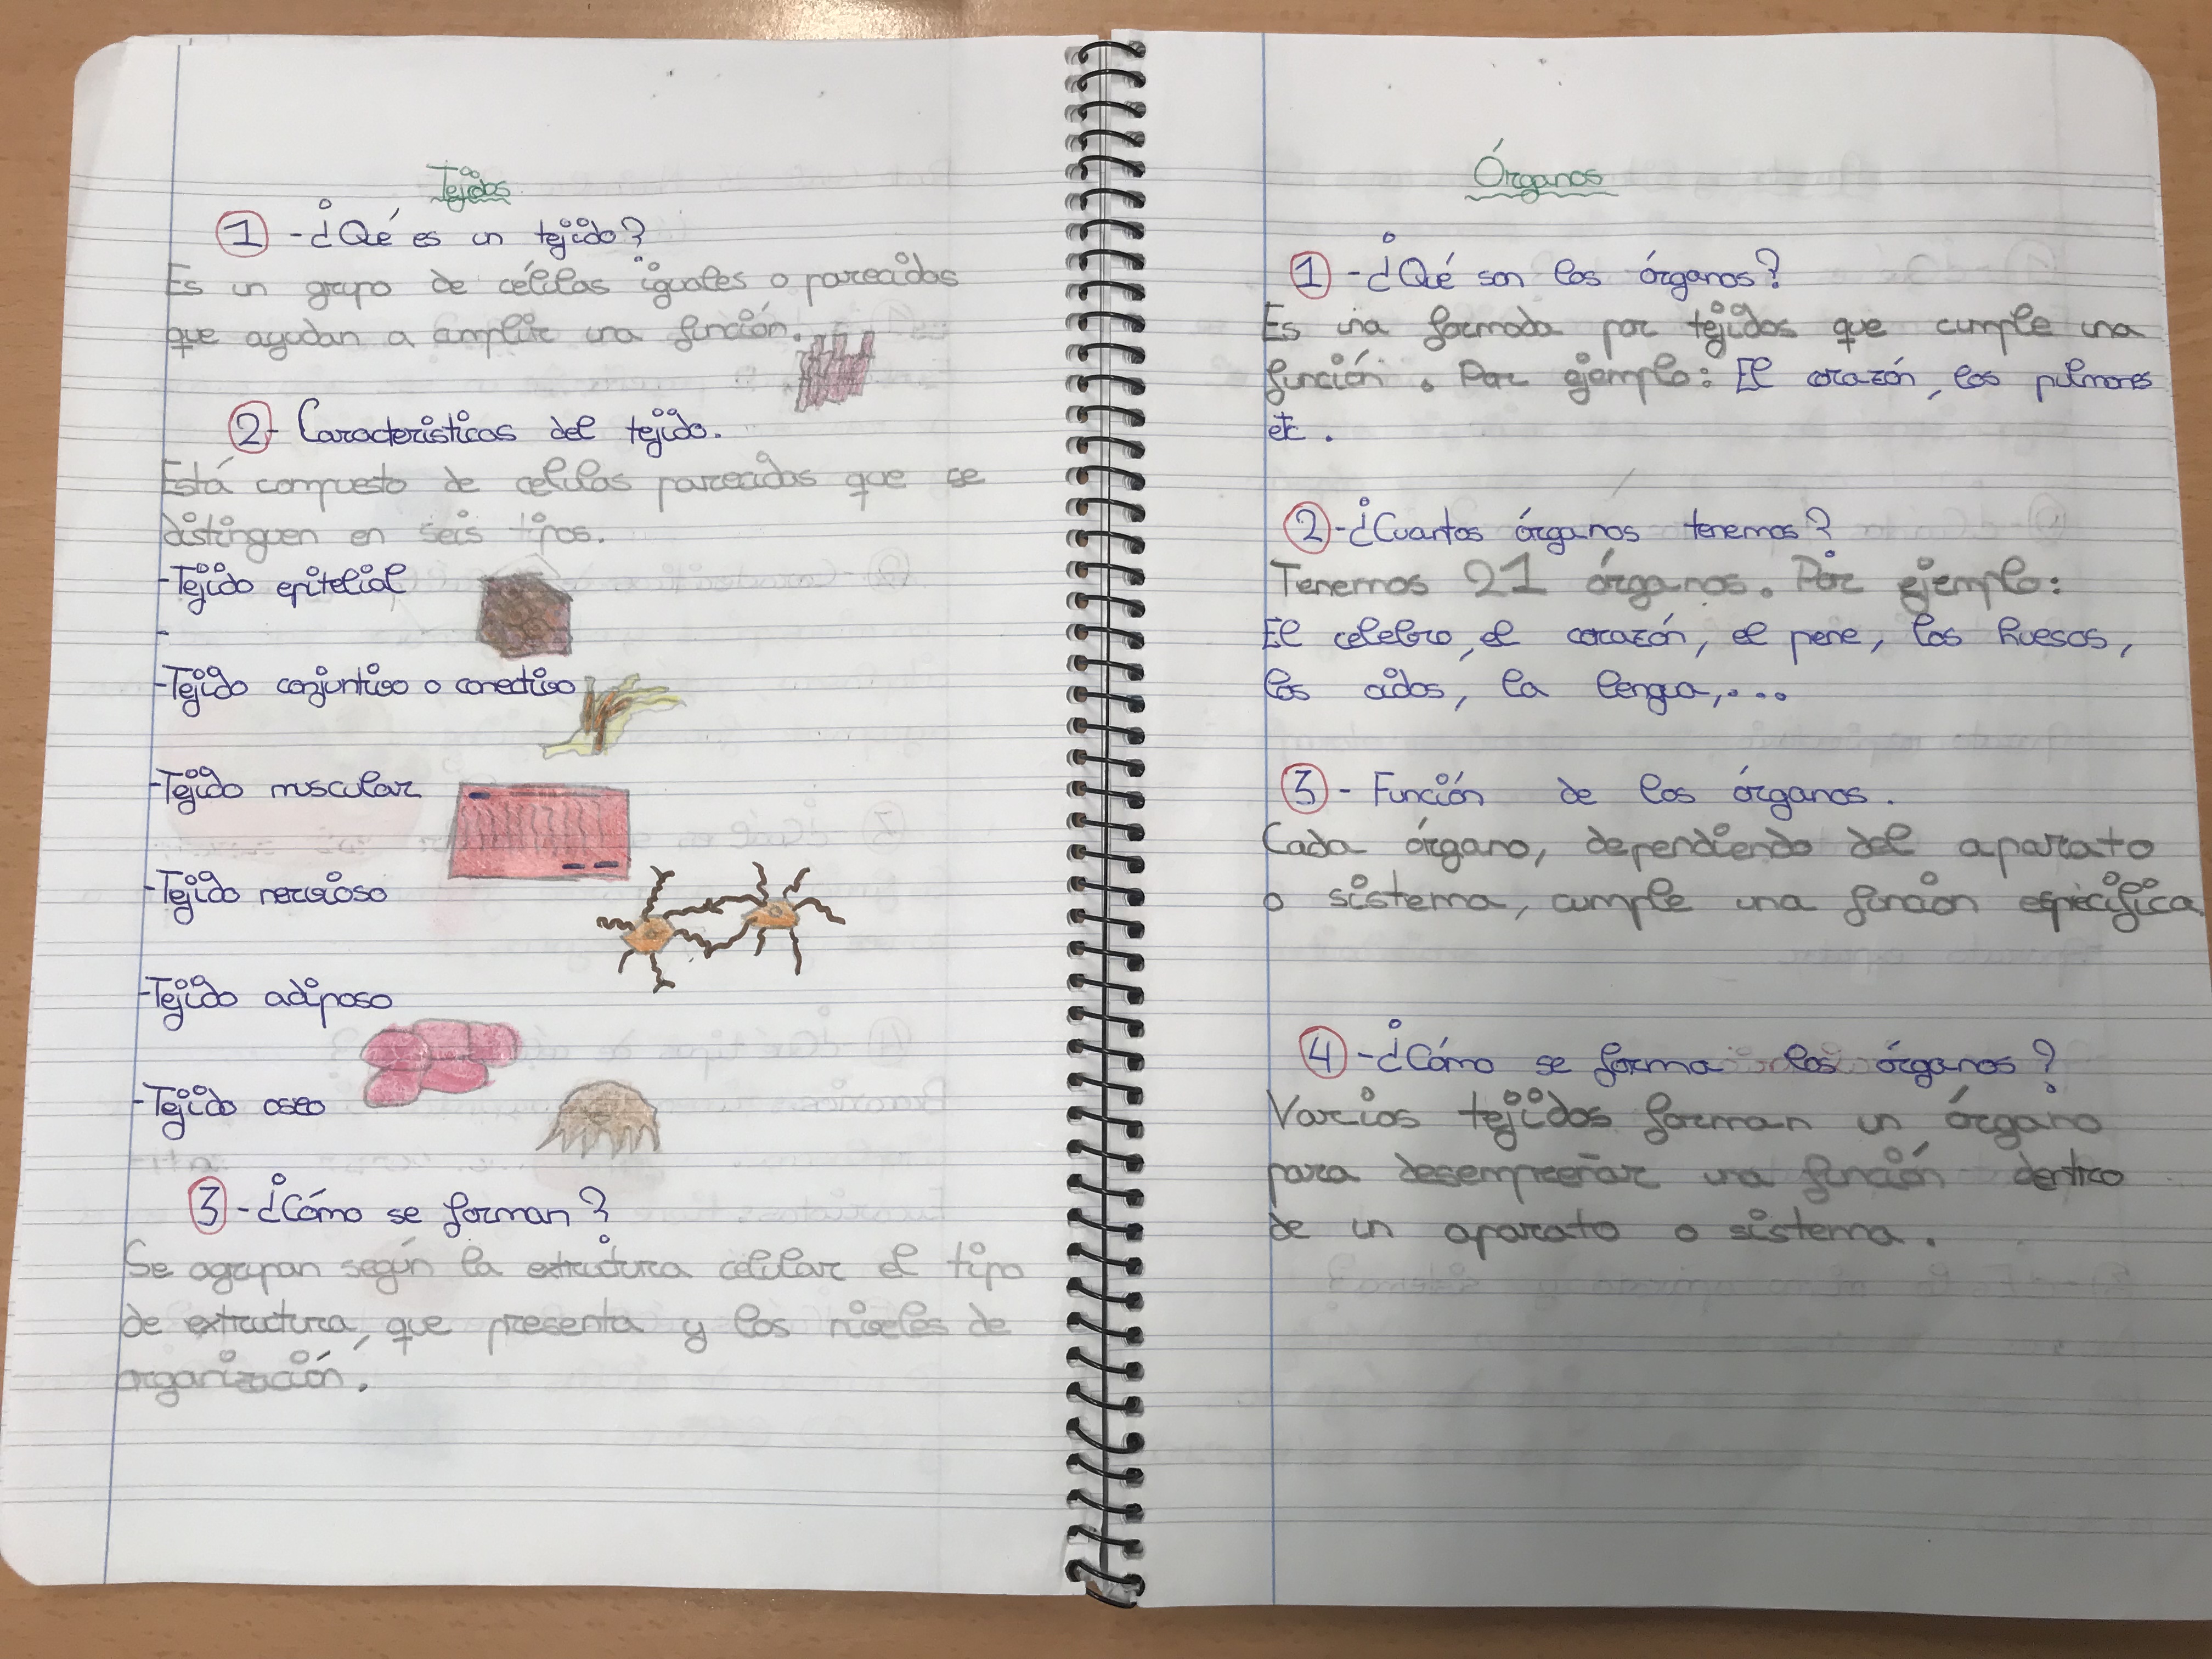 Tejidos
1 - ¿Qué es un tejido?
Es un grupo de células iguales o parecidas
que ayudan a cumplir una función.
2 - Características del tejido.
Está compuesto de celulas parecidas que se
distinguen en seis tipos.
-Tejido epitelial
-
-Tejido conjuntivo o conectivo
-Tejido muscular
-Tejido nervioso
-Tejido adiposo
-Tejido oseo
3 - ¿Cómo se forman?
Se agrupan según la extructura celular el tipo
de extructura, que presenta y los niveles de
organización.
Órganos
1 - ¿Qué son los órganos?
Es una formada por tejidos que cumple una
función. Por ejemplo: El corazón, los pulmones
etc.
2 - ¿Cuantos órganos tenemos?
Tenemos 21 órganos. Por ejemplo:
El celebro, el corazón, el pene, los huesos,
los oidos, la lengua,...
3 - Función de los órganos.
Cada órgano, dependiendo del aparato
o sistema, cumple una función especifica
4 - ¿Cómo se forma los órganos?
Varios tejidos forman un órgano
para desempreñar una función dentro
de un aparato o sistema.